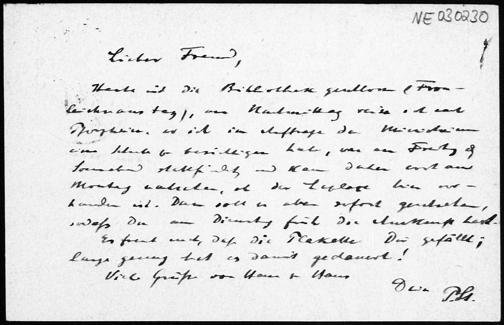 NE 030230
Lieber Freund,
Heute ist die Bibliothek geschlossen (Fron-
leichnamstag), am Nachmittag reise ich nach
Pforzheim, wo ich im Auftrage des Ministeriums
eine Schule zu besichtigen habe, was am Freitag &
Sonnabend stattfindet, und kann daher erst am
Montag nachsehen, ob der hier vor-
handen ist. Dann soll es aber sofort geschehen,
sodaß Du am Dienstag früh die Auskunft hast.
Es freut mich, daß die Plakette Dir gefällt;
lange genug hat es damit gedauert!
Viele Grüße von Haus zu Haus
Dein